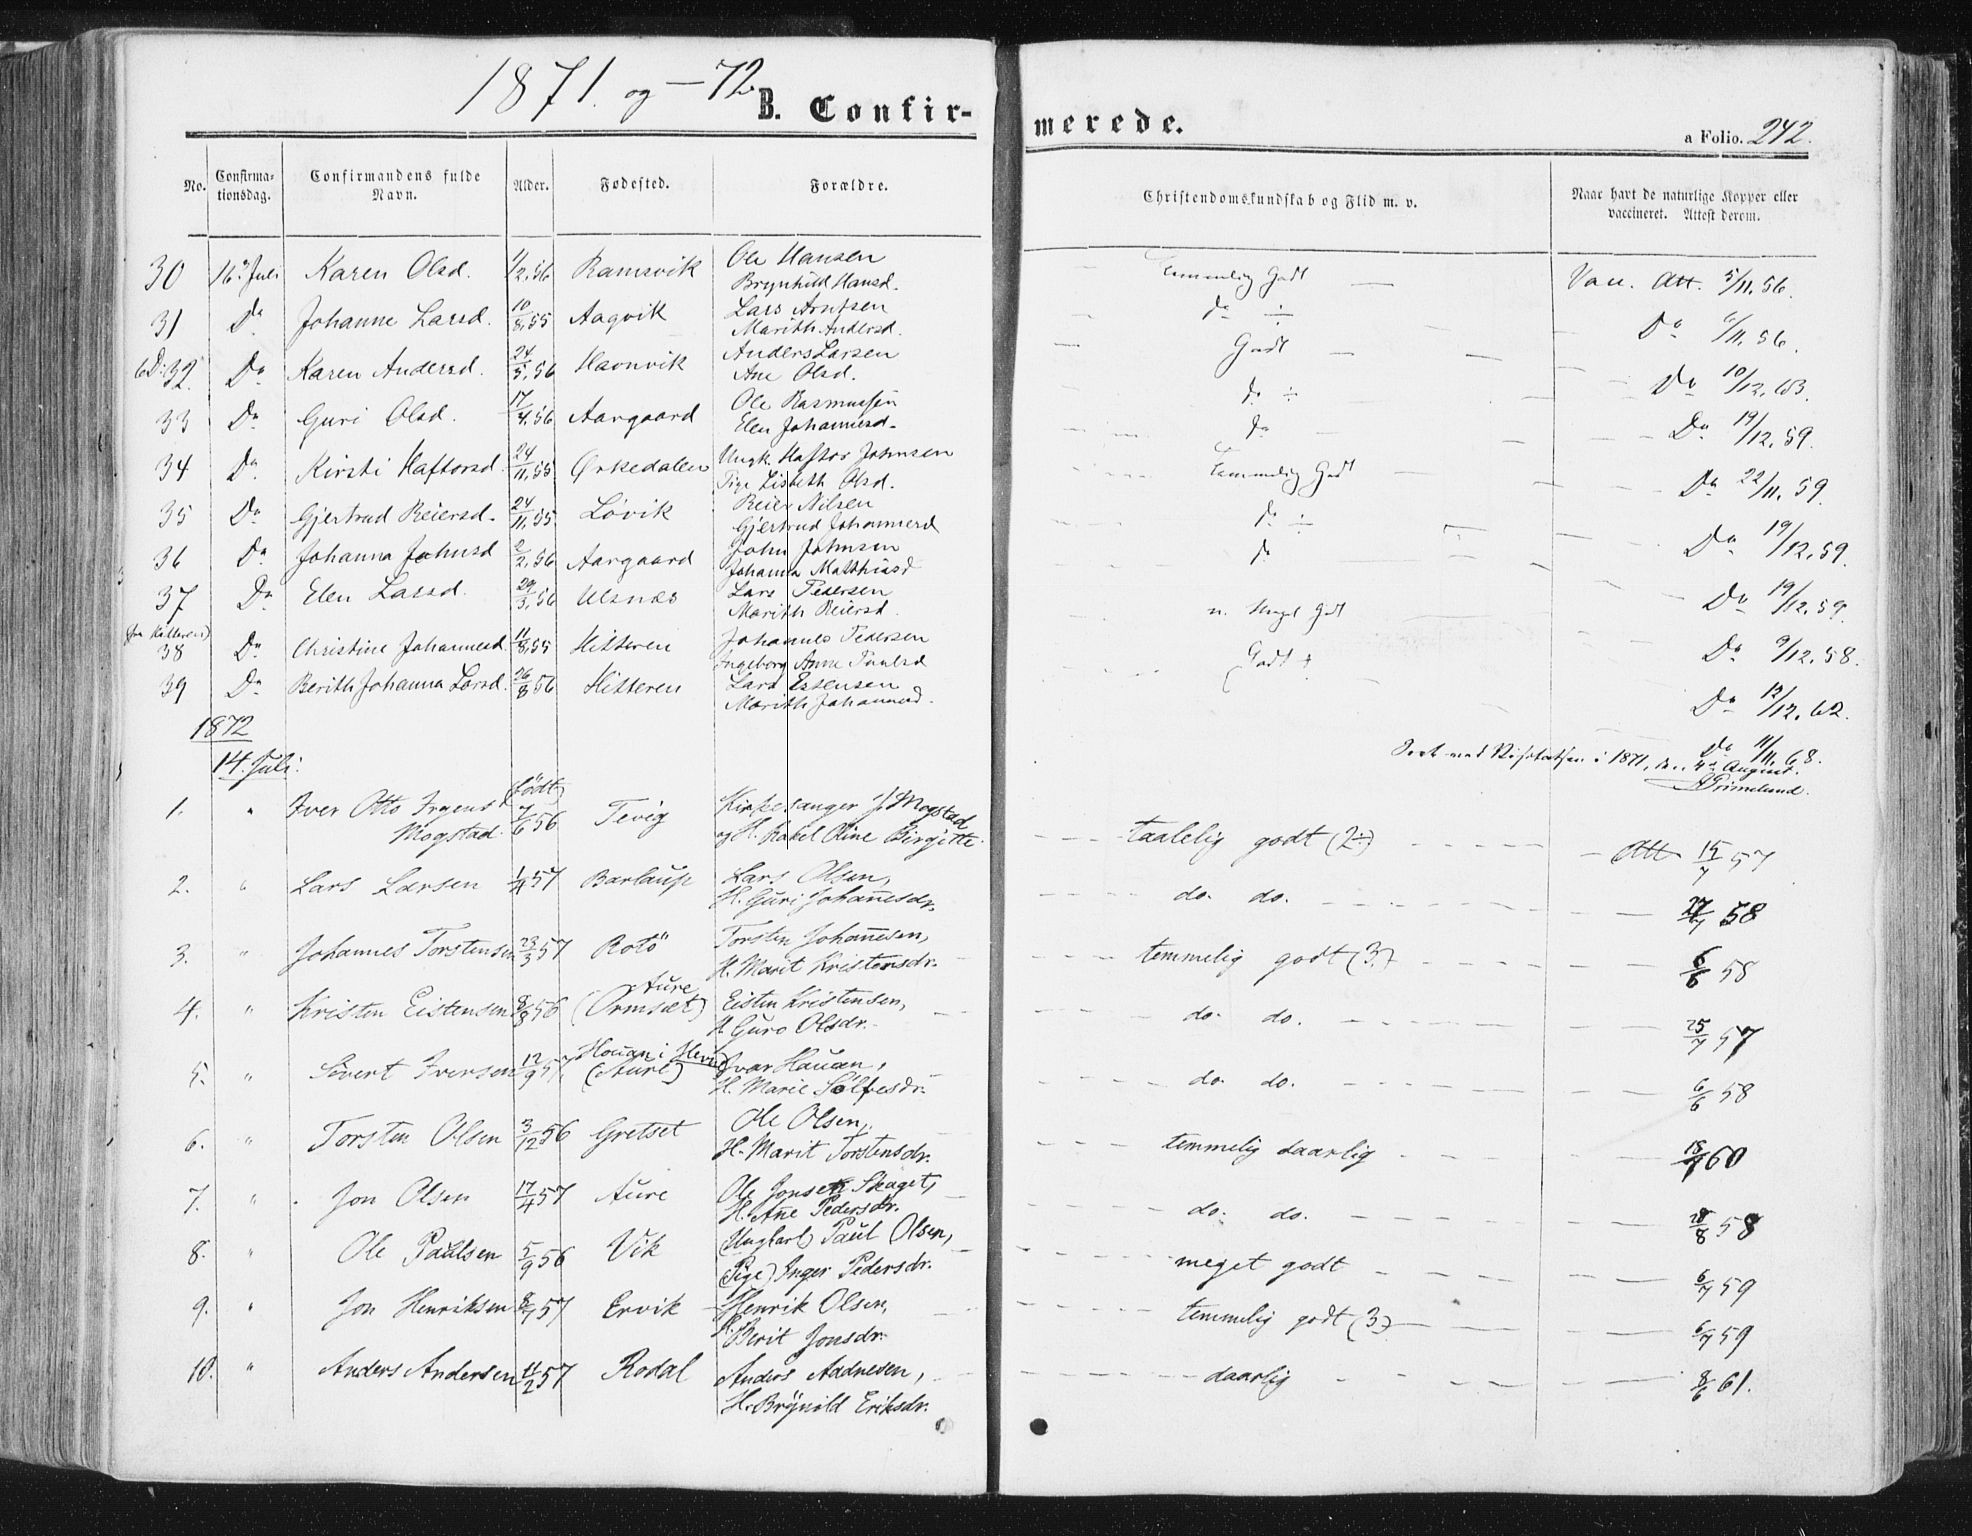 1871. og -72.
B. Confirmerede.
a Folio. 242.
No. Confirmationsdag. Confirmandens fulde Navn. Alder. Fødested. Forældre. Christendomskundskab og Flid m. v. Naar havt de naturlige Kopper eller vaccineret. Attest derom.
30 16de Juli Karen Olsd. 1/2.56 Ramsvik Ole Hansen Temmelig Godt Vac. Att. 5/11.56.
Brynhild Hansd.
31 Do Johanne Larsd. 10/8.55 Aagvik Lars Arntsen do ÷ Do 6/11.56.
Marith Andersd.
32 Do Karen Andersd. 24/5.56 Havnvik Anders Larsen Godt Do 10/12.63.
Ane Olsd.
33 Do Guri Olsd. 17/4.56 Aargaard Ole Rasmussen do ÷ Do 19/12.59.
Elen Johannesd.
34 Do Kirsti Haftorsd. 24/11.55 Ørkedalen Ungk. Haftor Johnsen do Do 22/11.59.
Pige Lisbeth Olsd.
35 Do Gjertrud Reiersd. 24/11.55 Løvik Reier Nilsen Temmelig Godt Do 19/12.59.
Gjertrud Johannesd
36 Do Johanna Johnsd 2/2.56 Aargaard John Johnsen do ÷ Do 19/12.59.
Johanna Matthiasd
37 Do Elen Larsd. 29/3.56 Ulsnæs Lars Pedersen do Do 9/12.58.
Marith Reiersd.
(fra Hitteren)
38 Do Christine Johannesd. 11/8.55 Hitteren Johannes Pedersen Meget Godt Do 12/12.62.
Ingeborg Anne Paulsd
39 Do Berith Johanna Larsd. 26/8 56 Hitteren Lars Estensen Godt + Do 11/11.68.
Marith Johannesd.
1872
14. Juli. i 1871, d. 4de August.
(født)
1. " Iver Otto Irgens Mogstad 7/6 56 Tevig Kirkesanger J. Mogstad taalelig godt (2÷) Att 15/7 57
og H. Rakel Oline Birgitte.
2. " Lars Larsen 1/4 57 Barlaup Lars Olsen, do. do. 27/7 58
H. Guri Johannesdr.
3. " Johannes Torstensen 23/3 57 Rotö Torsten Johannesen, temmelig godt (3.) 6/6 58
H. Marit Kristensdr.
4. " Kristen Eistensen 8/8 56 Aure (Ormsæt) Eisten Kristensen, do. do. 25/7 57
H. Guro Olsdr.
5. " Sivert Iversen 12/9 57 Houan i Hevne (Aure) Ivar Hauan, do. do. 6/6 58
H. Marie Sølfesdr.
6. " Torsten Olsen 3/12 56 Gretset Ole Olsen, temmelig daarlig 18/7 60
H. Marit Torstensdr.
7. " Jon Olsen 17/4 57 Aure Ole Jonsen Skaget, do. do. 18/8 58
H. Ane Pedersdr.
8. " Ole Paulsen 5/9 56 Vik (Ungkarl) Paul Olsen, meget godt 6/7 59
(Pige) Inger Pedersdr.
9. " Jon Henriksen 8/7 57 Ervik Henrik Olsen, temmelig godt (3.) 6/7 59
H. Berit Jonsdr.
10. " Anders Andersen 11/2 57 Rodal Anders Aadnesen, daarlig 8/6 61.
H. Brynild Eriksdr.